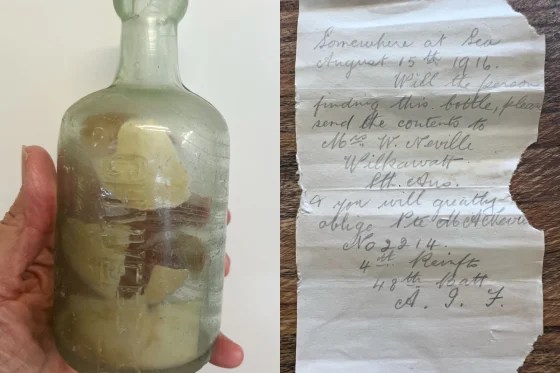 Somewhere at Sea
August 15th 1916.
Will the person
finding this bottle, please
send the contents to
Mrs. W. Neville
Wilkawatt
Sth. Aus.
& you will greatly
oblige Pte M. A. Neville
No 2214.
4th Reinft
48th Batt
A. I. F.